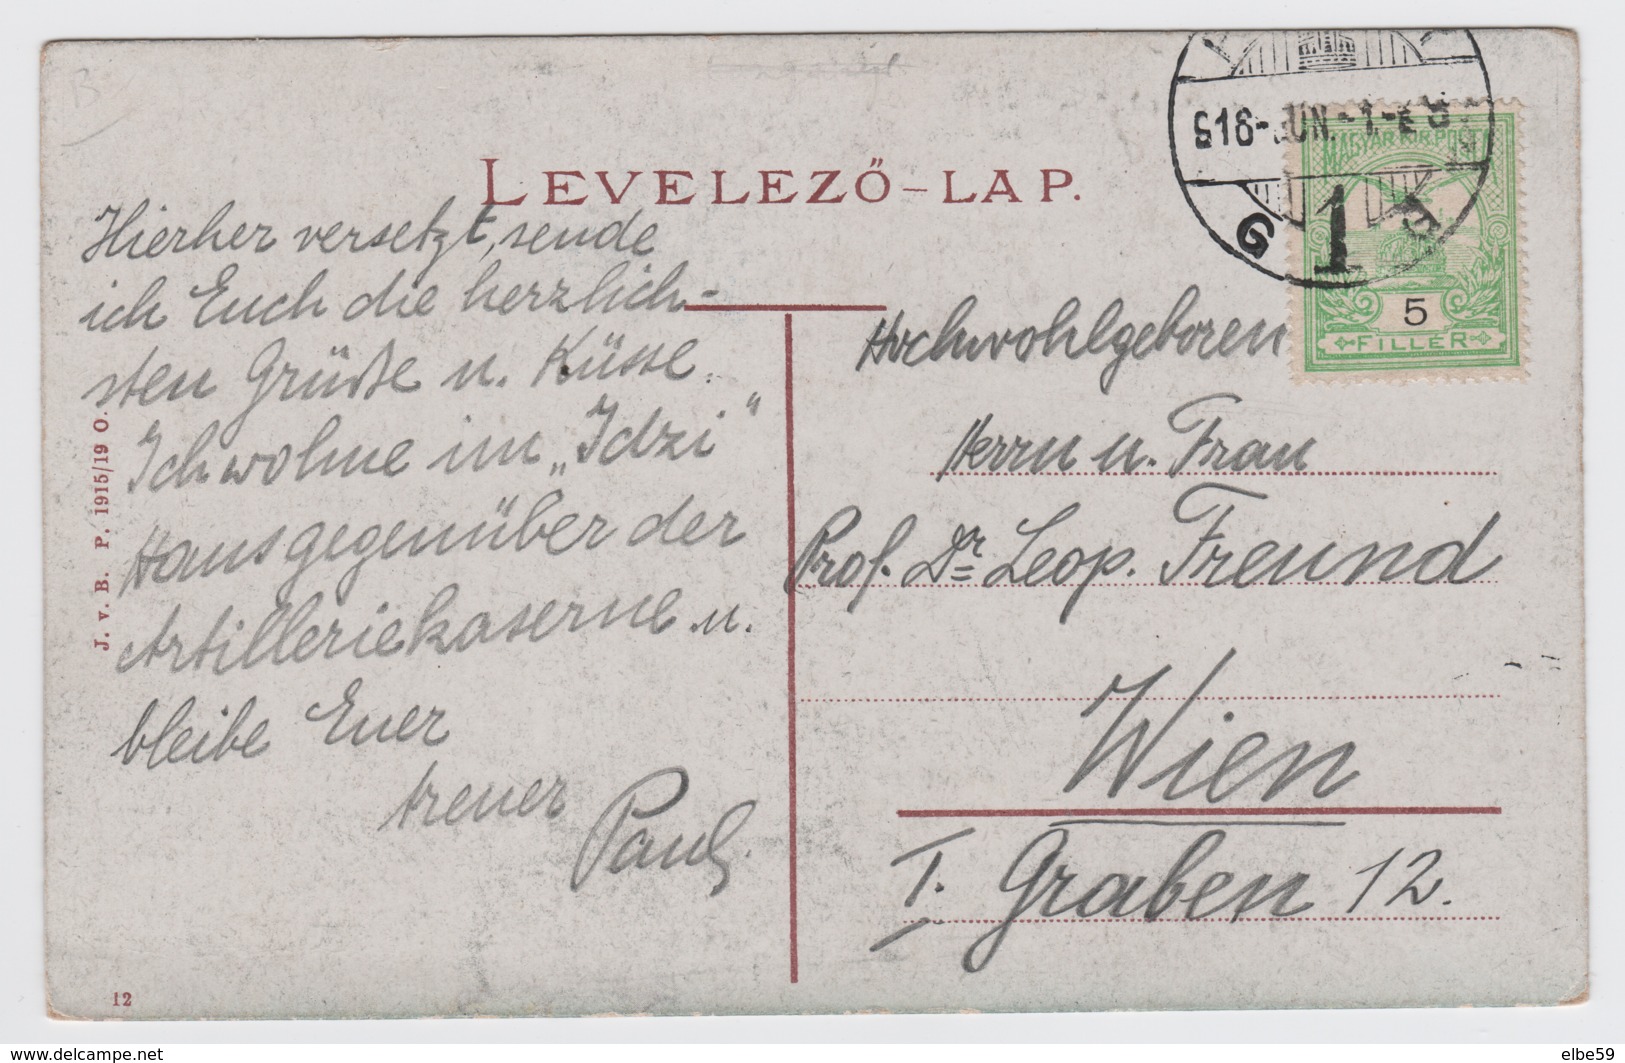 LEVELEZŐ-LAP.
Hierher versetzt, sende
ich Euch die herzlich-
sten Grüße u. Küsse.
Ich wohne im „Idzi“
Haus gegenüber der
Artilleriekaserne u.
bleibe Euer
treuer
Paul.
J. v. B. P. 1915/19 O.
12
916-JUN.-1-
G
1
MAGYAR KIR. POSTA
5
FILLÉR
Hochwohlgeboren
Herrn u. Frau
Prof. Dr Leop. Freund
Wien
I. Graben 12.
B
https://www.delcampe.net
elbe59